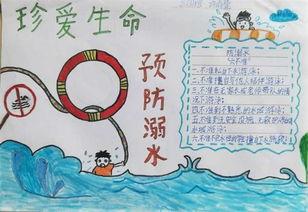 珍爱生命
预防溺水
防溺水
"六不准"
一.不准私自下水游泳;
二.不准擅自与他人结伴游泳;
三.不准在无家长或老师带队的情
况下游泳;
四.不准到不熟悉的水域游泳;
五.不准到无安全设施、无救护的
水域游泳;
六.不准不